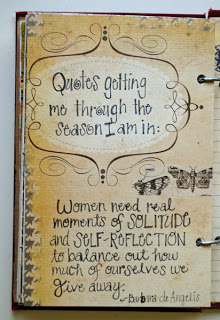 Quotes getting
me through the
season I am in:
Women need real
moments of SOLITUDE
and SELF-REFLECTION
to balance out how
much of ourselves we
give away.
-Barbara de Angelis